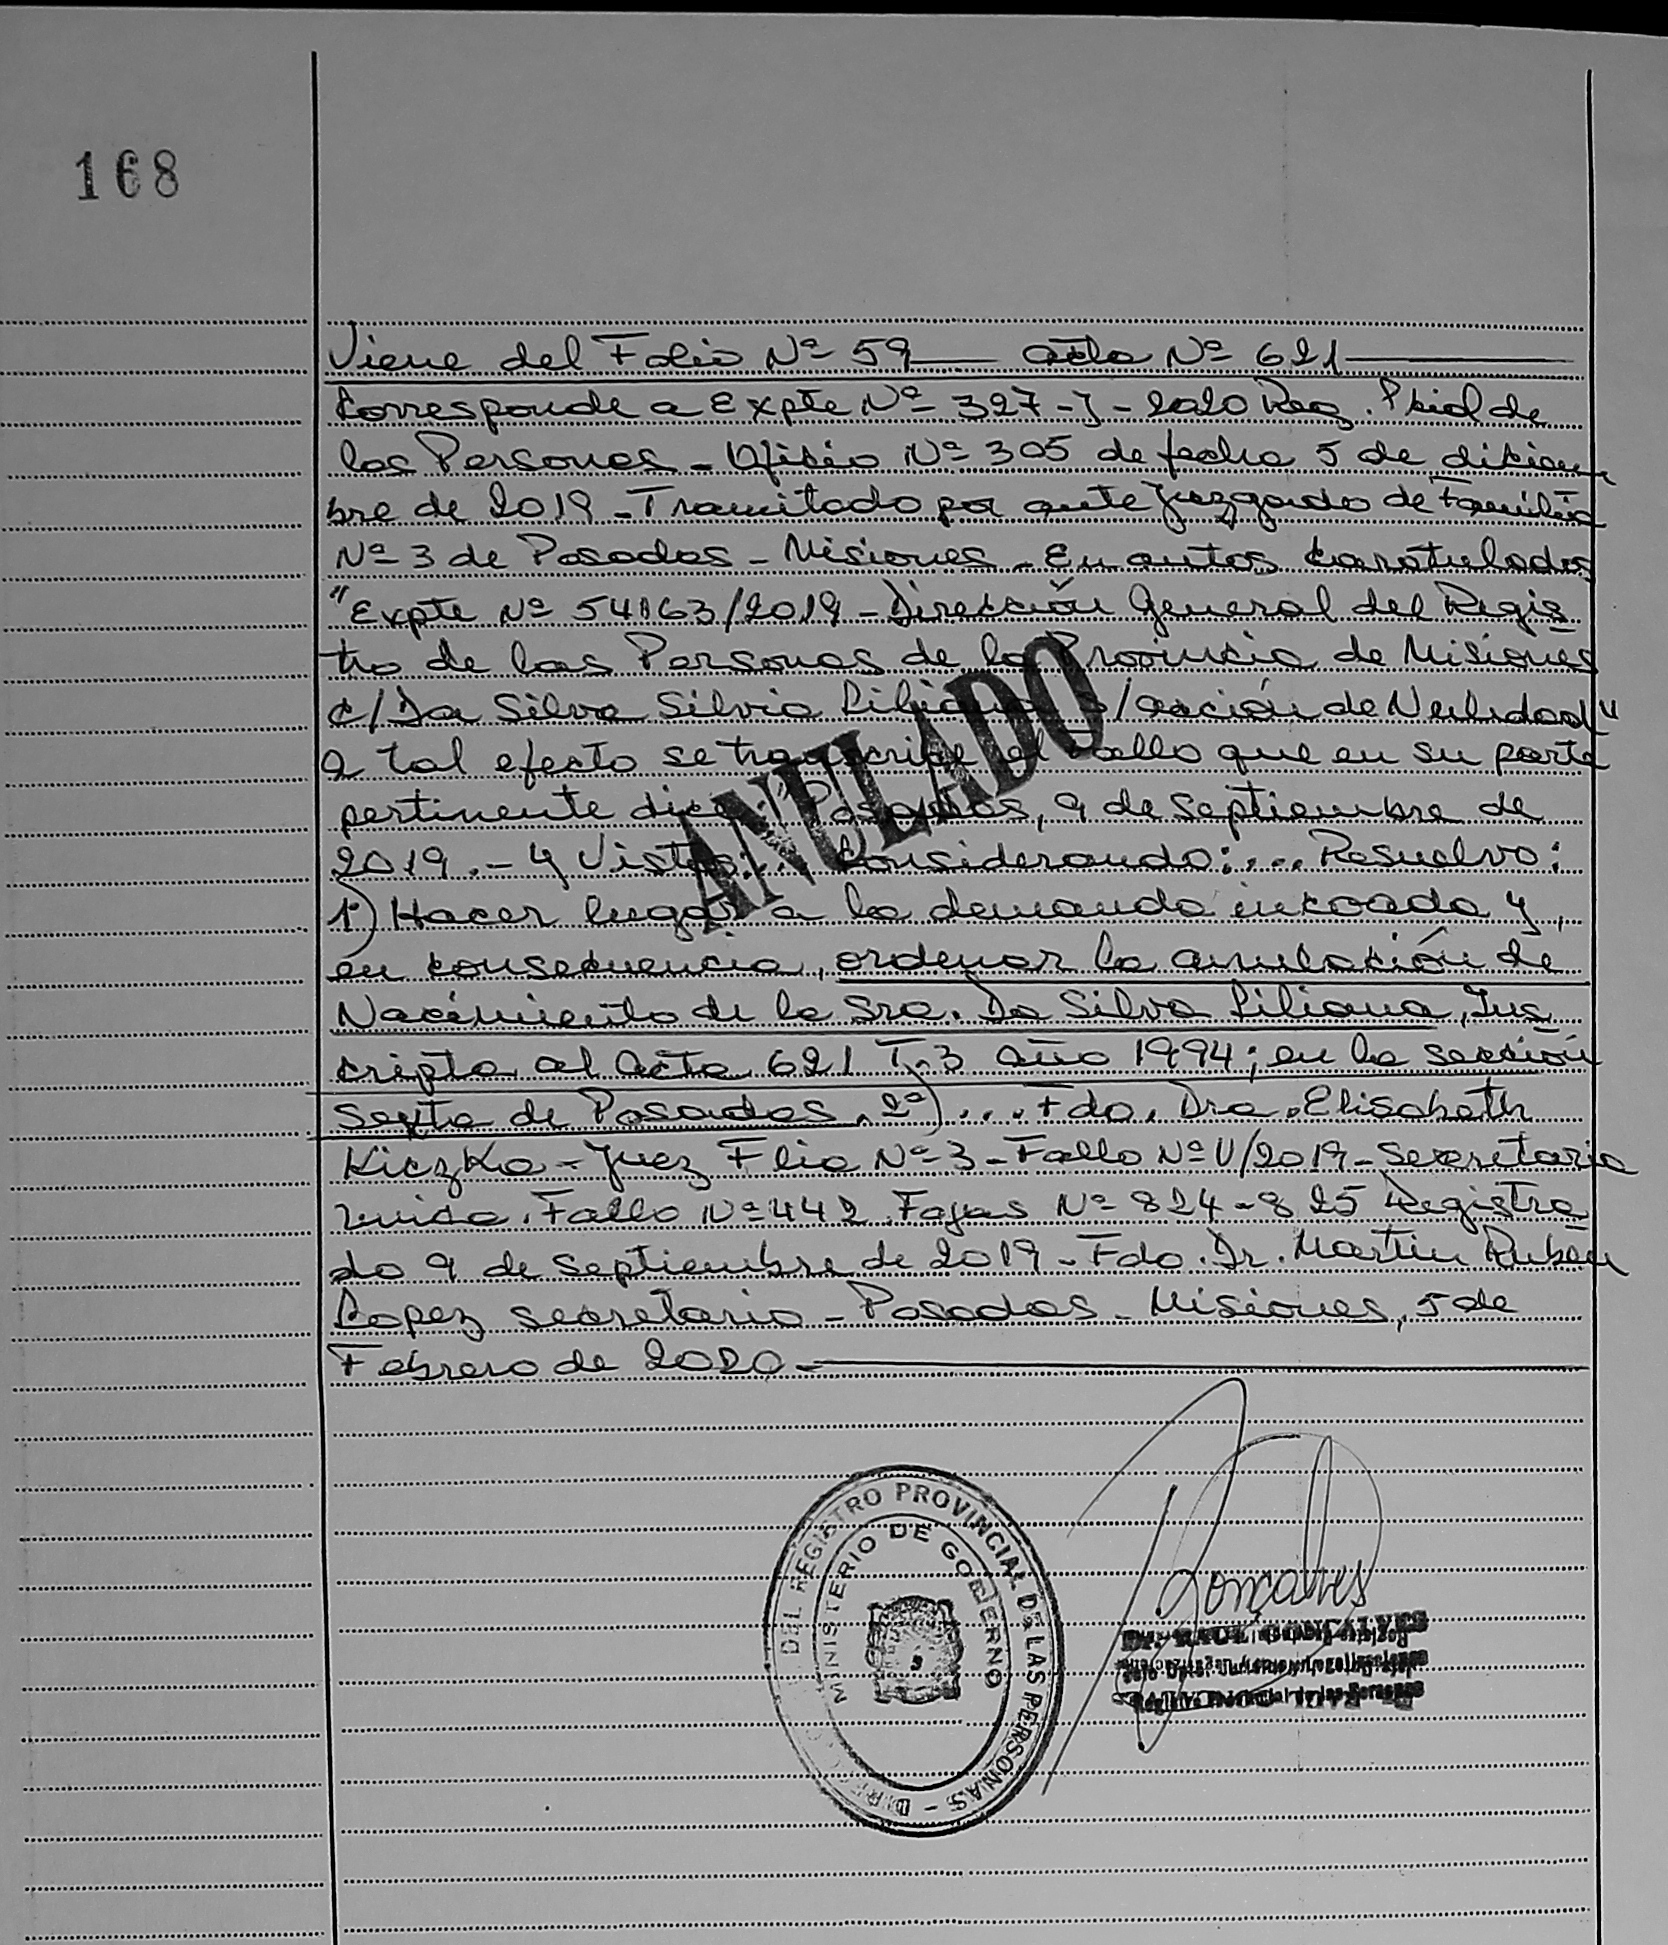 168
Viene del Folio Nº 59 — acta Nº 621
Corresponde a Expte Nº 327-J-2020 Reg. Pcial de
las Personas - Oficio Nº 305 de fecha 5 de diciem
bre de 2019 - Tramitado por ante Juzgado de Familia
Nº 3 de Posadas - Misiones - En autos caratulados
"Expte Nº 54163/2019 - Dirección General del Regis
tro de las Personas de la Provincia de Misiones
c/ Da Silva Silvia Liliana s/acción de Nulidad"
a tal efecto se transcribe el Fallo que en su parte
pertinente dice: "Posadas, 9 de Septiembre de
2019.- Y Vistos:... Considerando:... Resuelvo:
1º) Hacer lugar a la demanda incoada y,
en consecuencia, ordenar la anulación de
Nacimiento de la Sra. Da Silva Liliana, Ins
cripta al Acta 621 T.3 año 1994; en la sección
Sexta de Posadas. 2º).... Fdo. Dra. Elisabeth
Kiczka - Juez Flia Nº 3 - Fallo Nº /2019 - Secretaria
unica. Fallo Nº 442 Fojas Nº 824-825 Registra
do 9 de Septiembre de 2019 - Fdo. Dr. Martin Ruben
Lopez secretario - Posadas - Misiones, 5 de
Febrero de 2020 -
ANULADO
DEL REGISTRO PROVINCIAL DE LAS PERSONAS -
MINISTERIO DE GOBIERNO
Goncalves